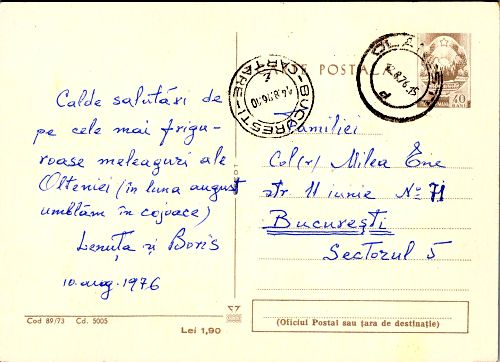 CARTE POSTALĂ
40 BANI
BUCUREȘTI
CARTARE
Calde salutări de
pe cele mai frigu-
roase meleaguri ale
Olteniei (în luna august
umblăm în cojoace)
Lenuța și Boris
10 aug. 1976
Familiei
Col(r) Milea Ene
str. 11 iunie No 71
București
Sectorul 5
Cod 89/73 Cd. 5005
Lei 1,90
(Oficiul Postal sau țara de destinație)